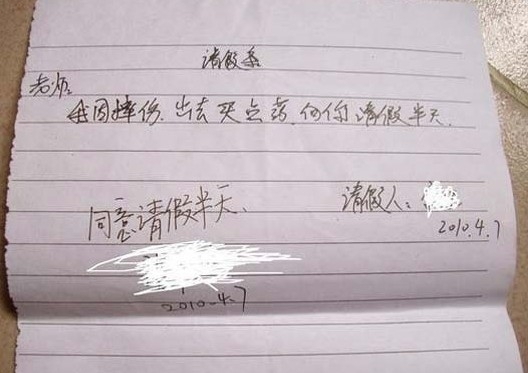 请假条
老师:
我因摔伤,出去买点药,向你请假半天.
请假人:
2010.4.7
同意请假半天、
2010.4.7